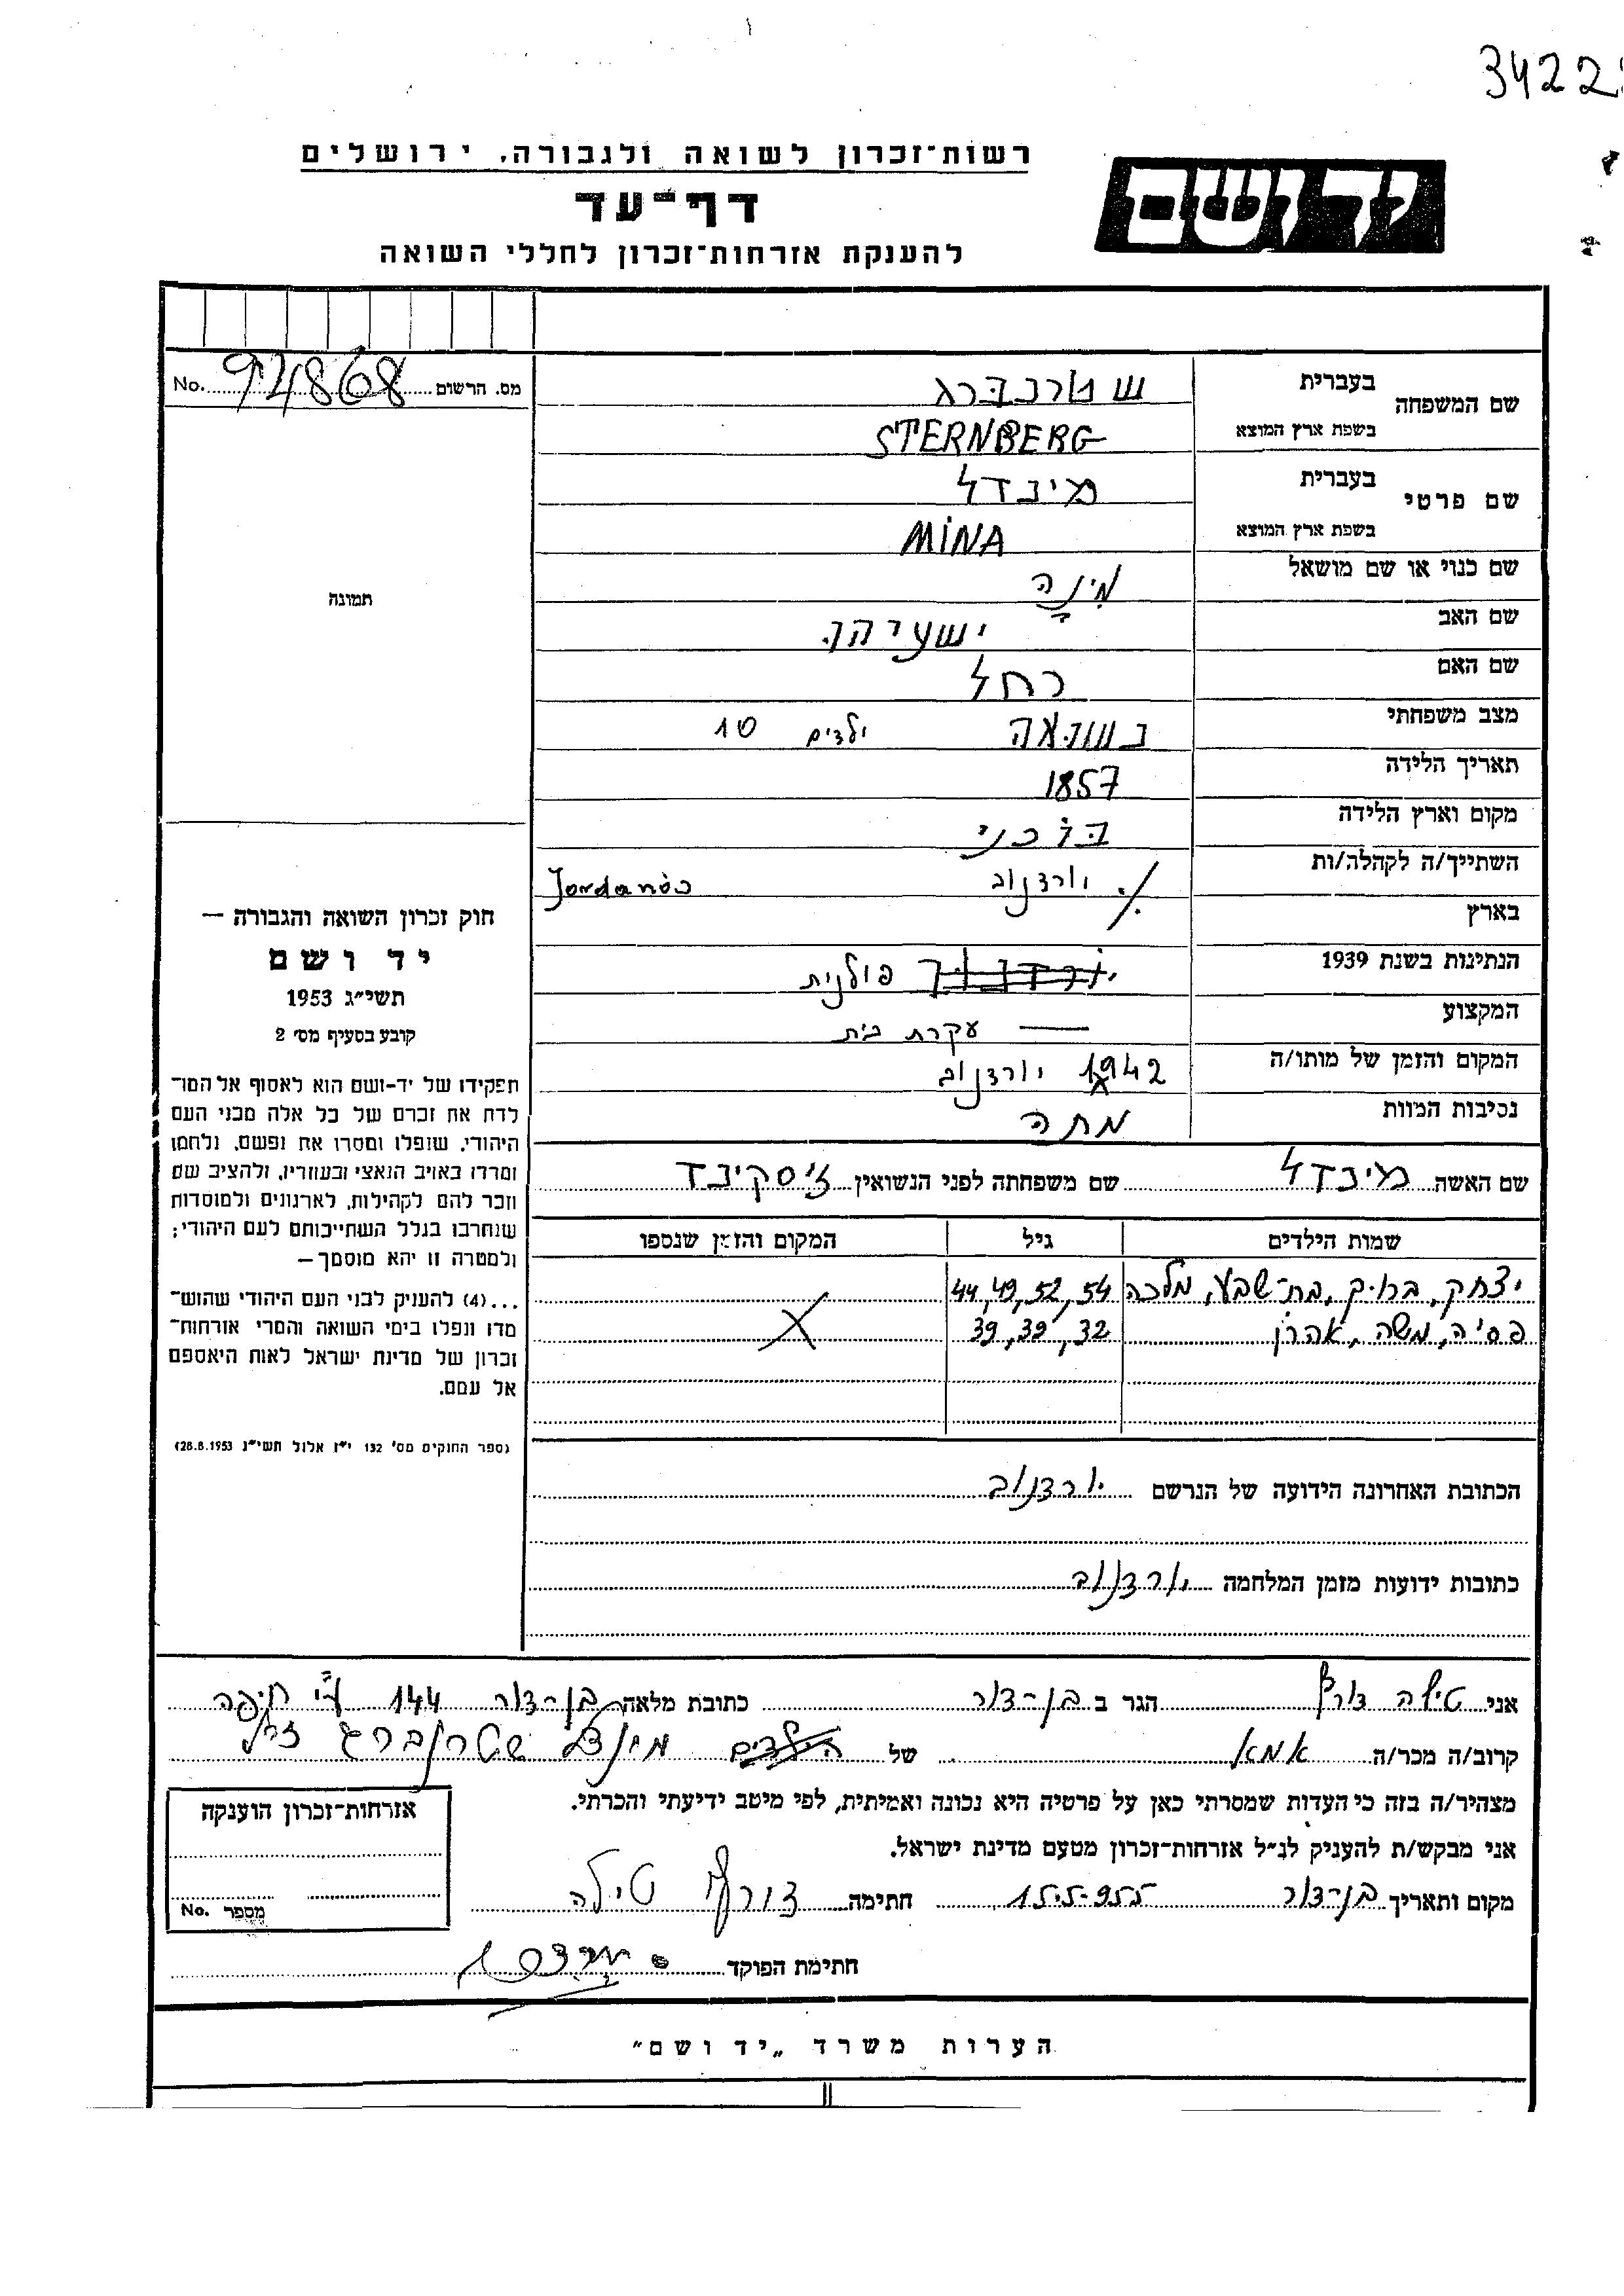 3422
רשות־זכרון לשואה ולגבורה, ירושלים
יד ושם
דף־עד
להענקת אזרחות־זכרון לחללי השואה
מס. הרשום 94868 No.
שם המשפחה בעברית שטרנברג
בשפת ארץ המוצא STERNBERG
שם פרטי בעברית מינדל
בשפת ארץ המוצא MINA
שם כנוי או שם מושאל מינה
שם האב ישעיהו
שם האם רחל
מצב משפחתי נשואה ילדים 10
תאריך הלידה 1857
מקום וארץ הלידה
השתייך/ה לקהלה/ות יורדנוב Jordanów
בארץ
הנתינות בשנת 1939 פולנית
המקצוע עקרת בית
המקום והזמן של מותו/ה 1942 יורדנוב
נסיבות המוות מתה
תמונה
חוק זכרון השואה והגבורה —
יד ושם
תשי״ג 1953
קובע בסעיף מס׳ 2
תפקידו של יד־ושם הוא לאסוף אל המו־
לדת את זכרם של כל אלה מבני העם
היהודי, שנפלו ומסרו את נפשם, נלחמו
ומרדו באויב הנאצי ובעוזריו, ולהציב שם
וזכר להם לקהילות, לארגונים ולמוסדות
שנחרבו בגלל השתייכותם לעם היהודי;
ולמטרה זו יהא מוסמך—
...(4) להעניק לבני העם היהודי שהוש־
מדו ונפלו בימי השואה והמרי אזרחות־
זכרון של מדינת ישראל לאות היאספם
אל עמם.
(ספר החוקים מס׳ 132 י״ז אלול תשי״ג 28.8.1953)
שם האשה מינדל שם משפחתה לפני הנשואין זיסקינד
שמות הילדים גיל המקום והזמן שנספו
יצחק, ברוך, בת־שבע, מלכה 54, 52, 49, 44
פסיה, משה, אהרן 32, 39, 39
הכתובת האחרונה הידועה של הנרשם יורדנוב
כתובות ידועות מזמן המלחמה יורדנוב
אני טילה צורף הגר ב בן־צור כתובת מלאה בן־צור 144 ע״י חיפה
קרוב/ה מכר/ה אמא של מינדל שטרנברג ז״ל
מצהיר/ה בזה כי העדות שמסרתי כאן על פרטיה היא נכונה ואמיתית, לפי מיטב ידיעתי והכרתי.
אני מבקש/ת להעניק לנ״ל אזרחות־זכרון מטעם מדינת ישראל.
מקום ותאריך בן־צור 15.5.955 חתימה צורף טילה
חתימת הפוקד
אזרחות־זכרון הוענקה
מספר No.
הערות משרד „יד ושם״